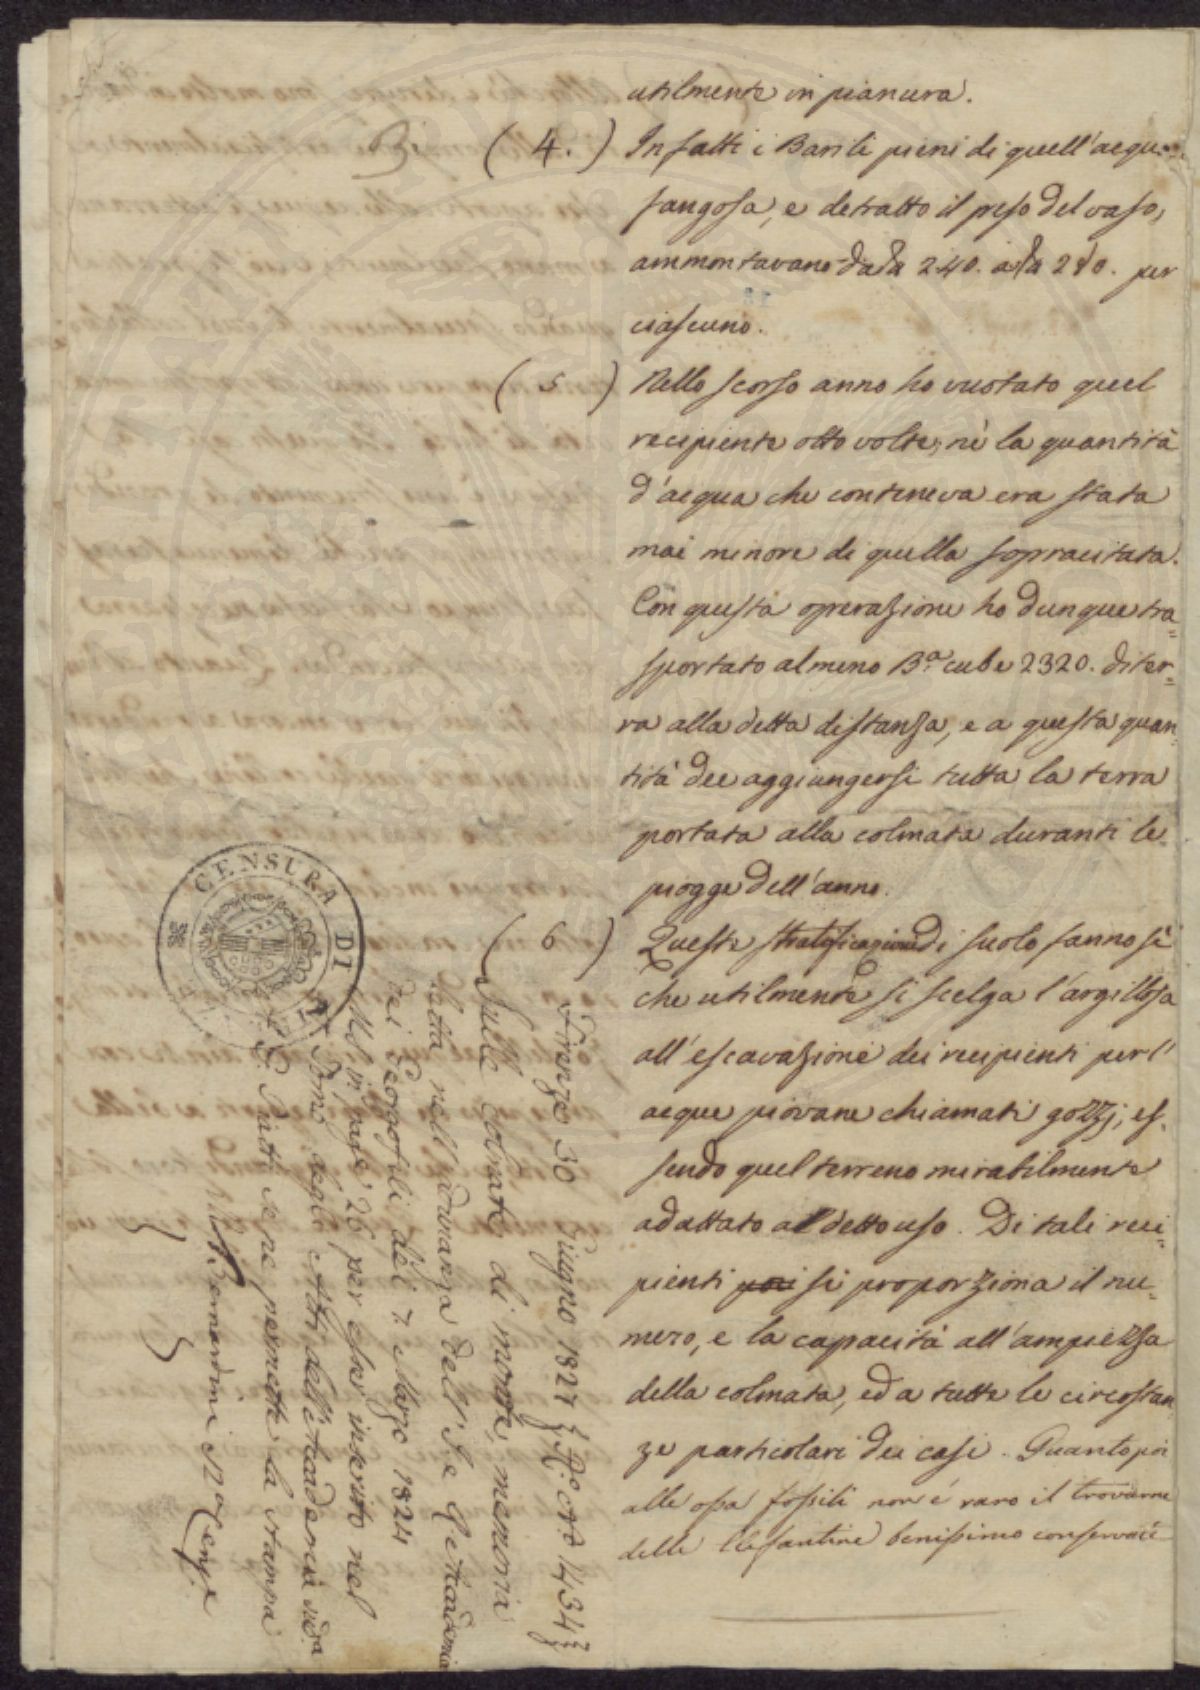 utilmente in pianura.
(4.) Infatti i Barili pieni di quell'acqua
fangosa, e detratto il peso del vaso,
ammontavano dalla 240. alla 280. per
ciascuno.
(5) Nello scorso anno ho vuotato quel
recipiente otto volte, nè la quantità
d'acqua che conteneva era stata
mai minore di quella sopracitata.
Con questa operazione ho dunque tra=
sportato almeno B.a cube 2320. di ter=
ra alla detta distanza, e a questa quan=
tità dee aggiungersi tutta la terra
portata alla colmata duranti le
piogge dell'anno.
(6) Queste stratificazioni di suolo fanno sì
che utilmente si scelga l'argillosa
all'escavazione dei recipienti per l'
acque piovane chiamati gozzj, es=
sendo quel terreno mirabilmente
adattato al detto uso. Di tali reci=
pienti poi si proporziona il nu=
mero, e la capacità all'ampiezza
della colmata, ed a tutte le circostan=
ze particolari dei casi. Quanto poi
alle ossa fossili non é raro il trovarne
delle Elefantine benissimo conservate
CENSURA DI
Firenze 30 Giugno 1827 R.o c.o 1434
Sulle Colmate di monte, memoria
letta nell'adunanza dell'I. e R. Accademia
dei Georgofili del 7 Marzo 1824
Mss. in pag.e 26 per esser inserito nel
Tomo degli Atti dell'Accademia sud.a
Se ne permette la stampa
Bernardini